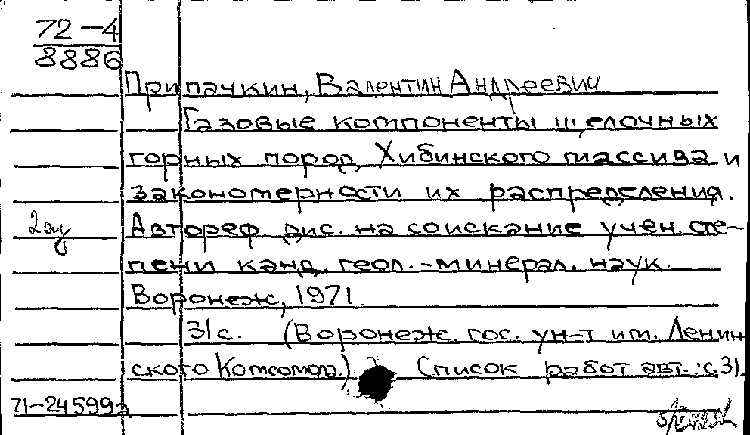 72-4
8886
Припачкин, Валентин Андреевич
Газовые компоненты щелочных
горных пород Хибинского массива и
закономерности их распределения.
Автореф. дис. на соискание учен. сте-
пени канд. геол.-минерал. наук.
Воронеж, 1971.
31 с. (Воронеж. гос. ун-т им. Ленин-
ского Комсомола.) Список работ авт.: с. 31.
71-24599а